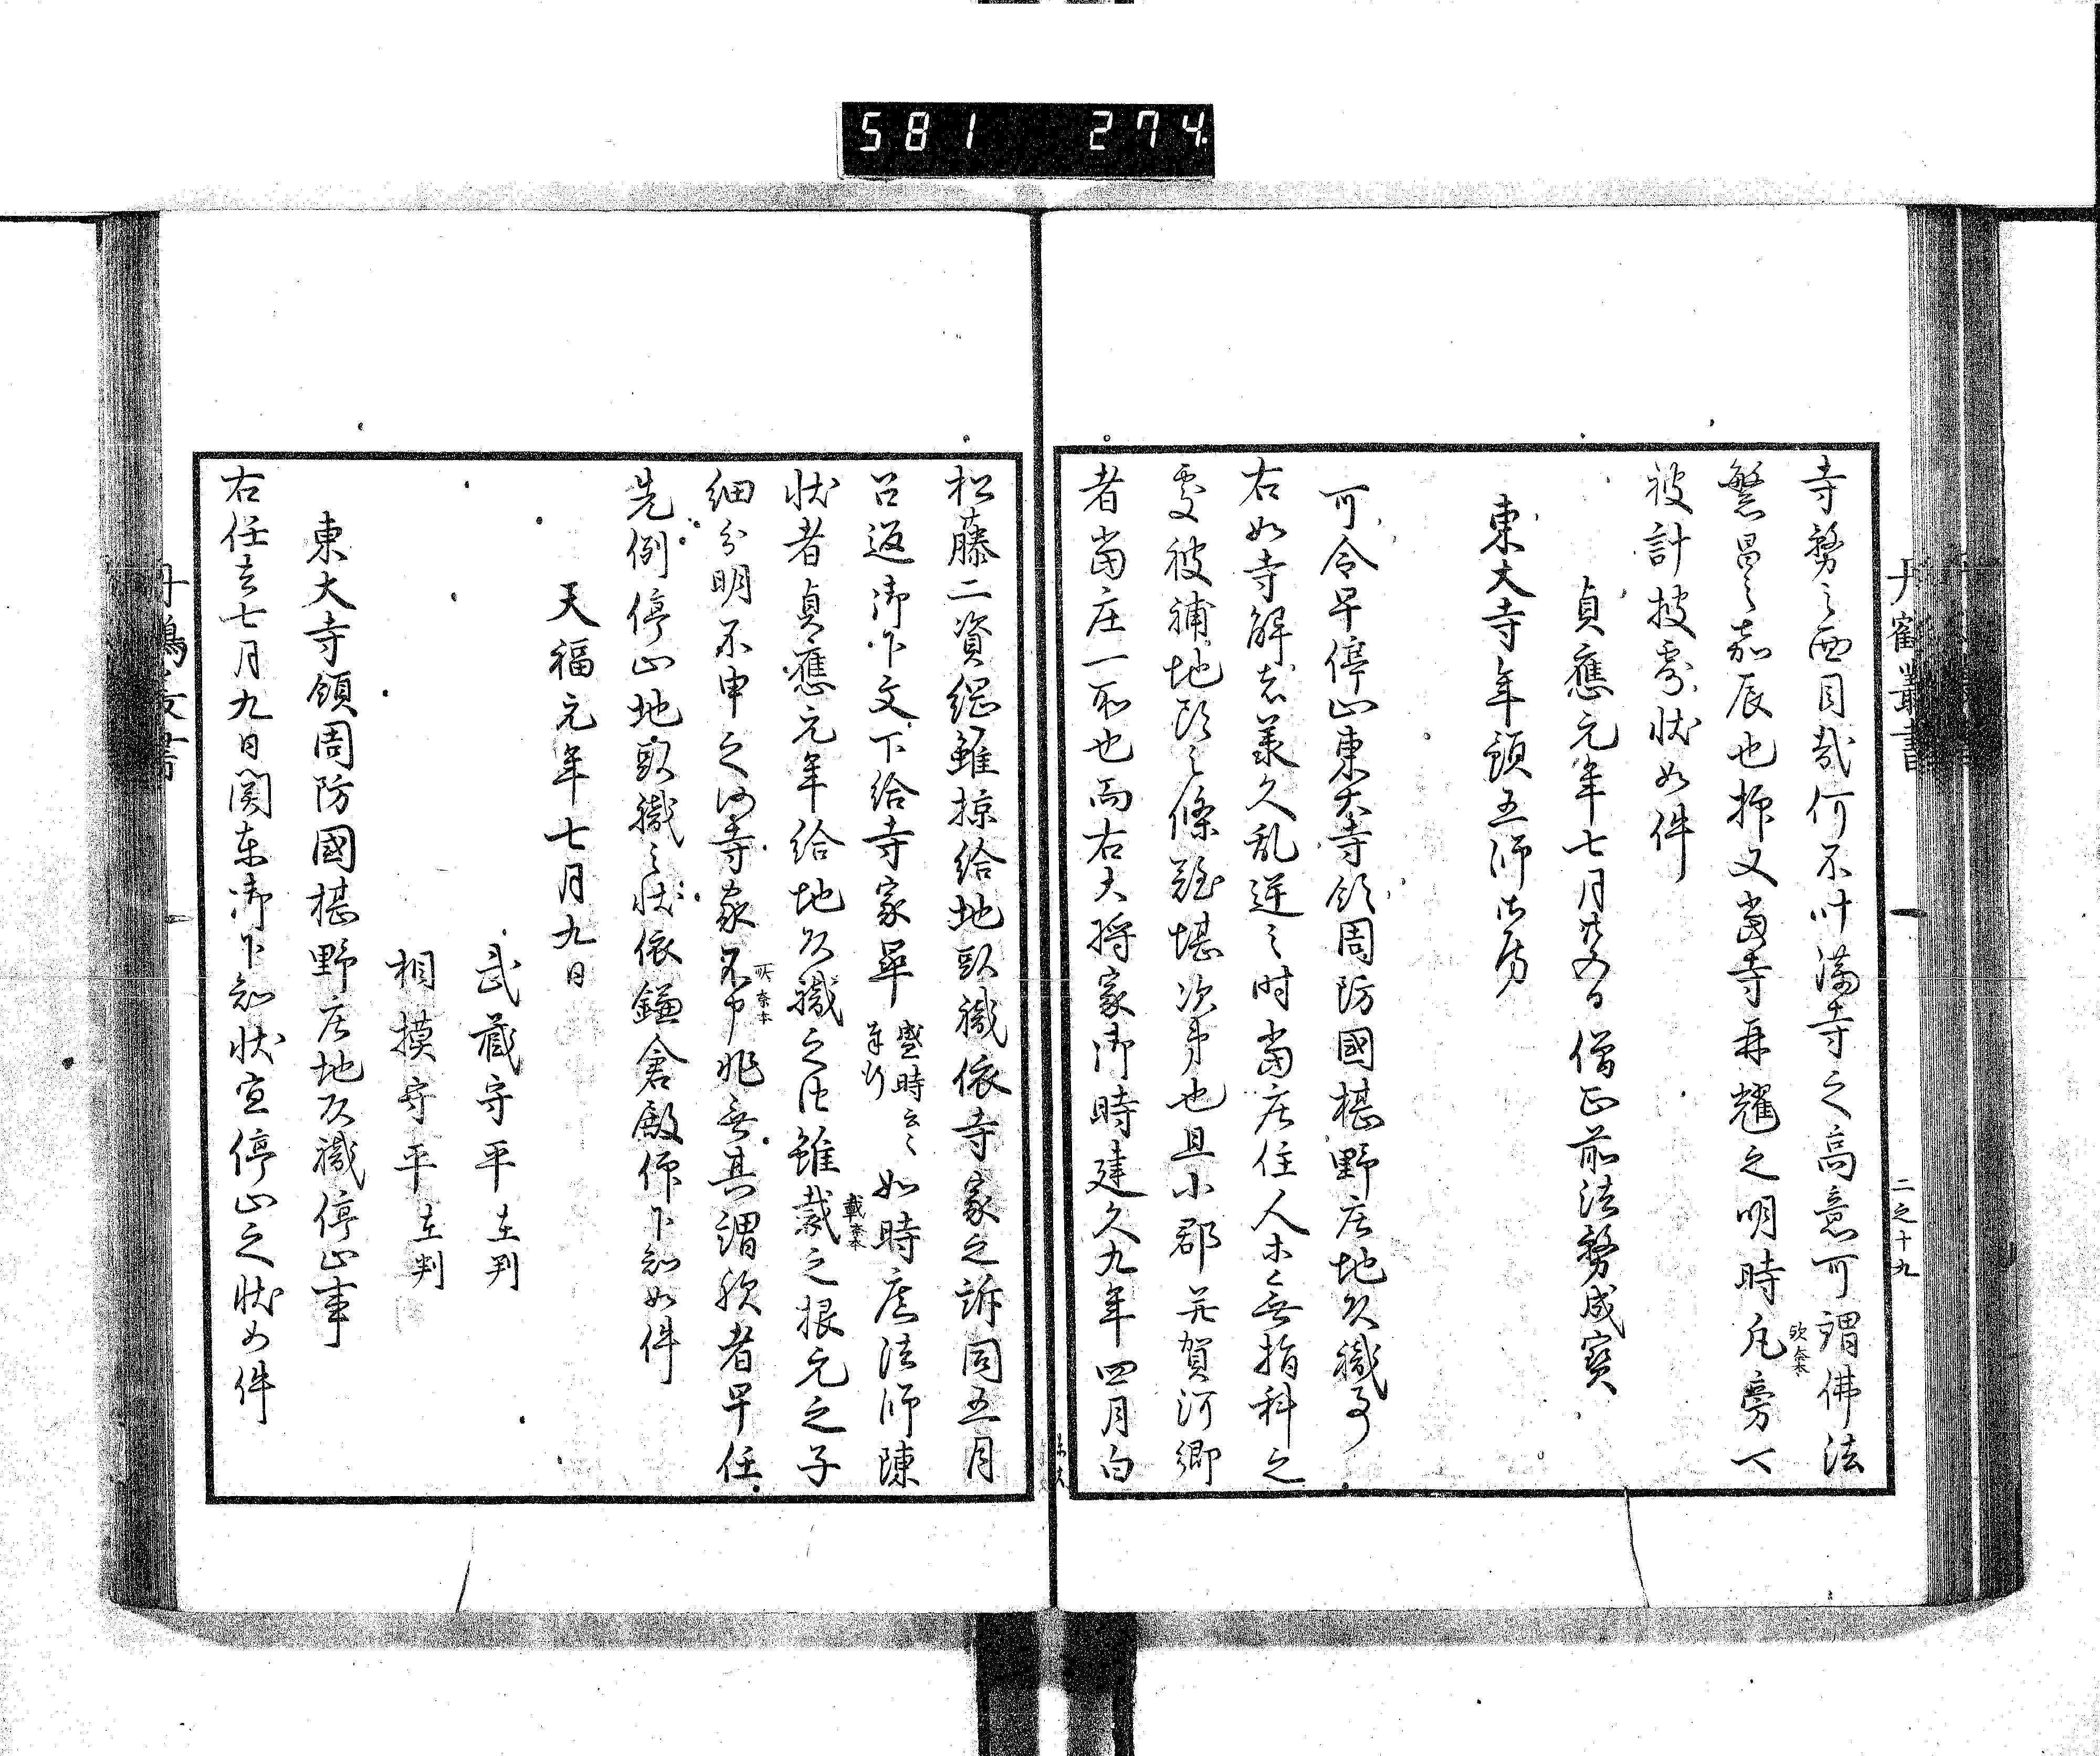 581 274
丹鶴叢書
二之十九
寺務之面目哉何不叶満寺之高意可謂佛法
繁昌之嘉辰也抑又当寺再耀之明時凡旁可
歟奈本
被計披露状如件
貞應元年七月廿五日 僧正前法務成寶
東大寺年預五師御房
可令早停止東大寺領周防國椹野庄地頭職事
右如寺解者承久乱逆之時當庄住人等無指科之
處被補地頭之條難堪次第也且小郡并賀河郷
者当庄一所也而右大将家御時建久九年四月白
松藤二資綱雖掠給地頭職依寺家之訴同五月
召返御下文下給寺家畢 盛時云々 奉行 如時廣法師陳
状者貞應元年給地頭職之由雖裁之根元之子
載奈本
細分明不申之 寺家 非無其謂歟者早任
所奈本
先例停止地頭職之状依鎌倉殿仰下知如件
天福元年七月九日
武蔵守平在判
相摸守平在判
東大寺領周防國椹野庄地頭職停止事
右任去七月九日関東御下知状宜停止之状如件